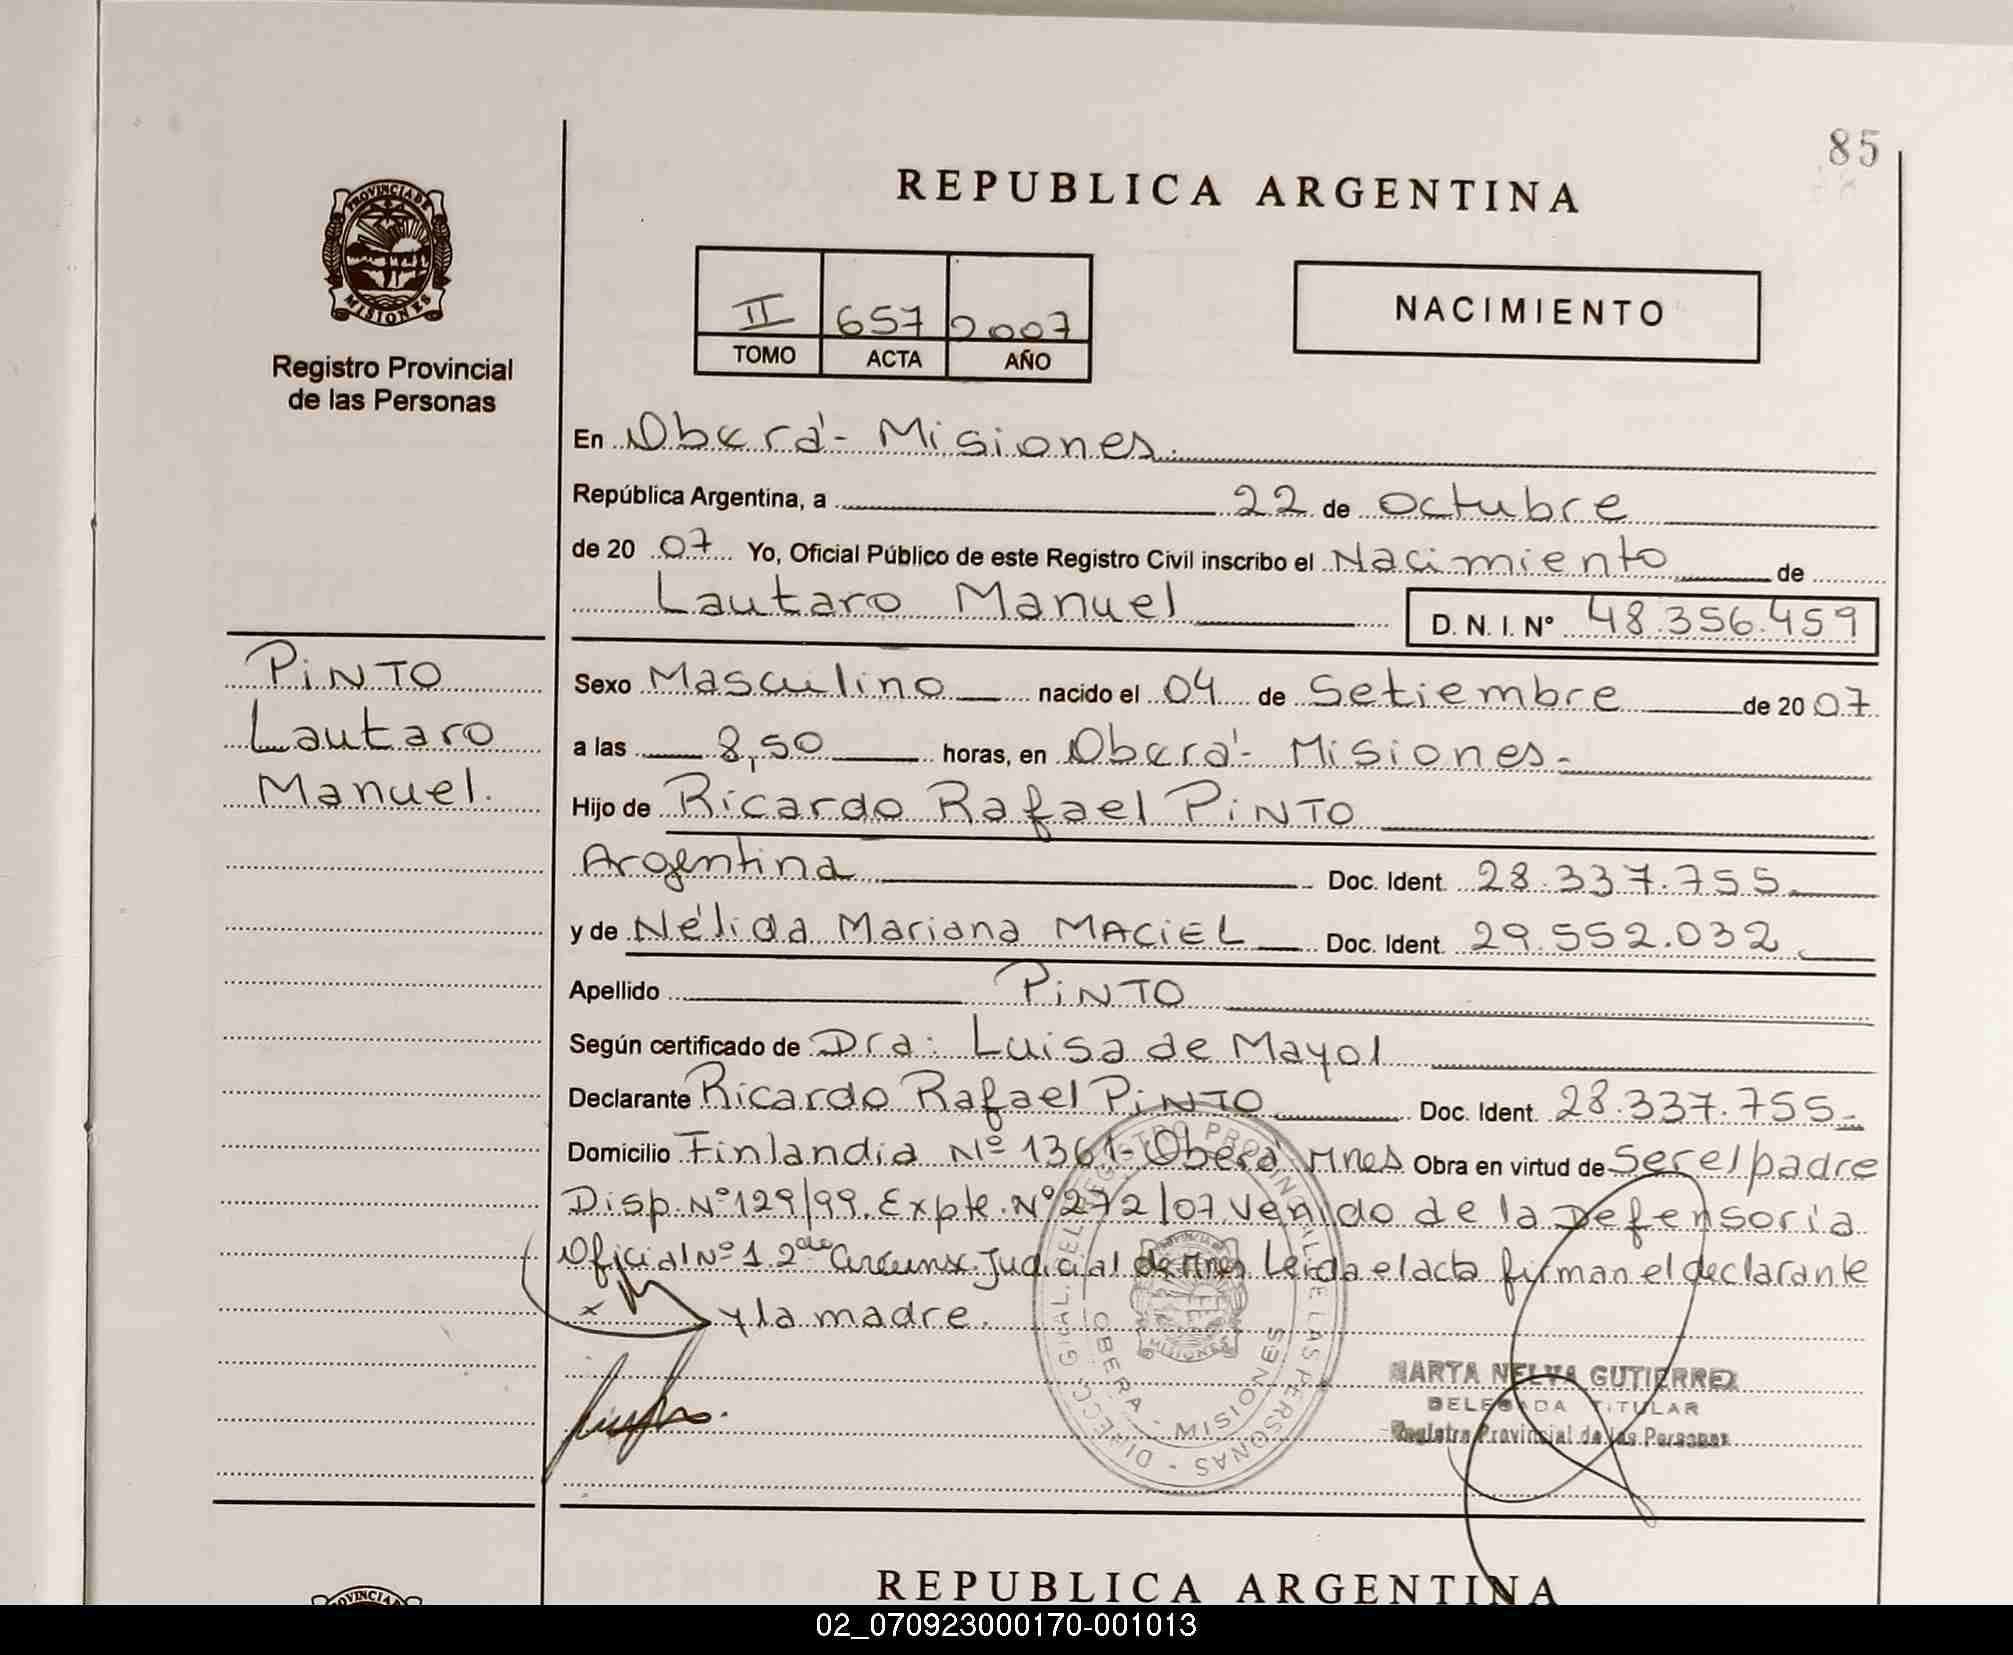 85
REPUBLICA ARGENTINA
PROVINCIA DE
MISIONES
Registro Provincial
de las Personas
II 657 2007
TOMO ACTA AÑO
NACIMIENTO
En Oberá - Misiones.
República Argentina, a 22 de Octubre
de 20 07 Yo, Oficial Público de este Registro Civil inscribo el Nacimiento de
Lautaro Manuel D. N. I. N° 48.356.459
PiNTO
Lautaro
Manuel.
Sexo Masculino nacido el 04 de Setiembre de 20 07
a las 8,50 horas, en Oberá - Misiones.
Hijo de Ricardo Rafael PiNTO
Argentina Doc. Ident. 28.337.755
y de Nélida Mariana MACiEL Doc. Ident. 29.552.032
Apellido PiNTO
Según certificado de Dra: Luisa de Mayol
Declarante Ricardo Rafael PiNTO Doc. Ident. 28.337.755
Domicilio Finlandia Nº 1361- Oberá Mnes Obra en virtud de Ser el padre
Disp. Nº 129/99. Expte. Nº 272/07 Venido de la Defensoria
Oficial Nº 1. 2da Circunsc. Judicial de Mnes Leida el acta firman el declarante
x y la madre.
DIRECC. GRAL. DEL REGISTRO PROVINCIAL DE LAS PERSONAS
OBERA - MISIONES
MARTA NELVA GUTIERREZ
DELEGADA TITULAR
Registro Provincial de las Personas
REPUBLICA ARGENTINA
02_070923000170-001013